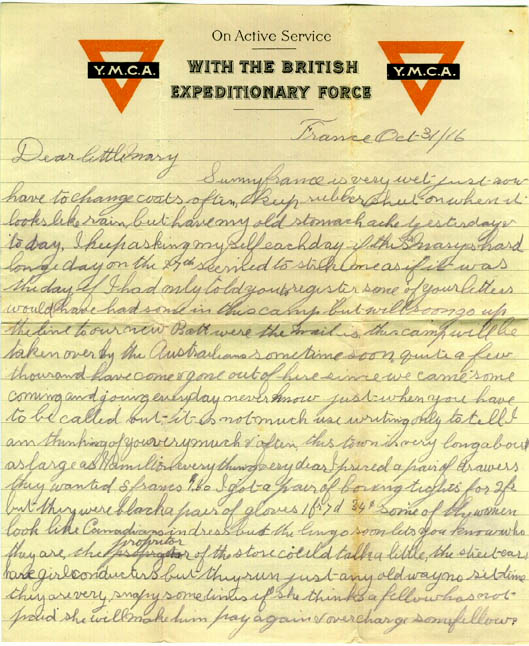 On Active Service
WITH THE BRITISH
EXPEDITIONARY FORCE
Y.M.C.A.
Y.M.C.A.
France Oct 31/16
Dear little Mary
Sunny france is very wet just now
have to change coats often, rubber sheet on when it
looks like rain, but have my old stomach ache yesterday &
to day. I keep asking my self each day if this Mary's hard
long day on the 27th seemed to strike me as if it was
the day, if I had only told you register some of your letters
would have had some in this camp. but will soon go up
the line to our new Batt were the mail is this camp will be
taken over by the Australians sometime soon, quite a few
thousand have come & gone out of here since we came some
coming and joing everyday never know just when you have
to be called out it is not much use writing only to tell I
am thinking of you very much & often, this town is very long about
as large as Hamilton every thing very dear I priced a pair of drawers
they wanted 8 francs 1.60 I got a pair of boxing tights for 2fs
but they were black a pair of gloves 1f 7d 34¢ some of the women
look like Canadians in dress but the lingo soon lets you know who
they are, the propritor of the store could talk a little, the street cars
have girl conductors but they run just any old way no set time
they are very snapy sometimes if she thinks a fellow has not
paid she will make him pay again & over charge some fellows